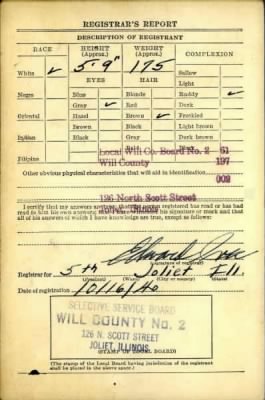 REGISTRAR'S REPORT
DESCRIPTION OF REGISTRANT
RACE
HEIGHT
(Approx.)
WEIGHT
(Approx.)
COMPLEXION
White ✓
5-9"
175
Sallow
Light
EYES
HAIR
Ruddy ✓
Negro
Blue
Blonde
Dark
Gray ✓
Red
Freckled
Oriental
Hazel
Brown ✓
Light brown
Brown
Black
Dark brown
Indian
Black
Gray
Black
Filipino
Bald
Local Will Co. Board No. 2 51
Will County 197
Other obvious physical characteristics that will aid in identification
009
126 North Scott Street
I certify that my answers are true; that the person registered has read or has
had read to him his own answers; that I have witnessed his signature or mark and that
all of his answers of which I have knowledge are true, except as follows:
Edward
(Signature of registrar)
Registrar for 5th Joliet Ill.
(Ward) (City or county) (State)
Date of registration 10/16/40
SELECTIVE SERVICE BOARD
WILL COUNTY No. 2
126 N. SCOTT STREET
JOLIET, ILLINOIS
(STAMP OF LOCAL BOARD)
(The stamp of the Local Board having jurisdiction of the registrant
shall be placed in the above space.)